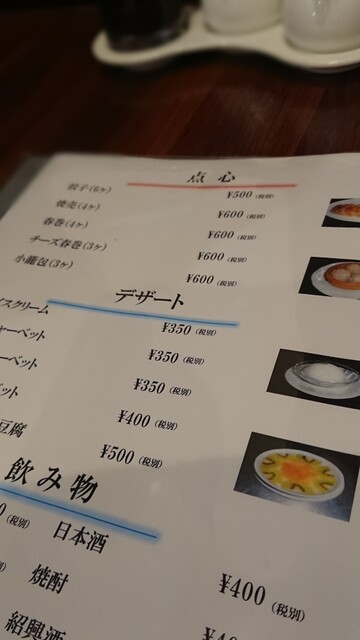 点心
餃子(6ヶ) ¥500(税別)
焼売(4ヶ) ¥600(税別)
春巻(4ヶ) ¥600(税別)
チーズ春巻(3ヶ) ¥600(税別)
小籠包(3ヶ) ¥600(税別)
デザート
イスクリーム ¥350(税別)
ャーベット ¥350(税別)
ーベット ¥350(税別)
ット ¥400(税別)
豆腐 ¥500(税別)
飲み物
0(税別) 日本酒
焼酎 ¥400(税別)
紹興酒 ¥4